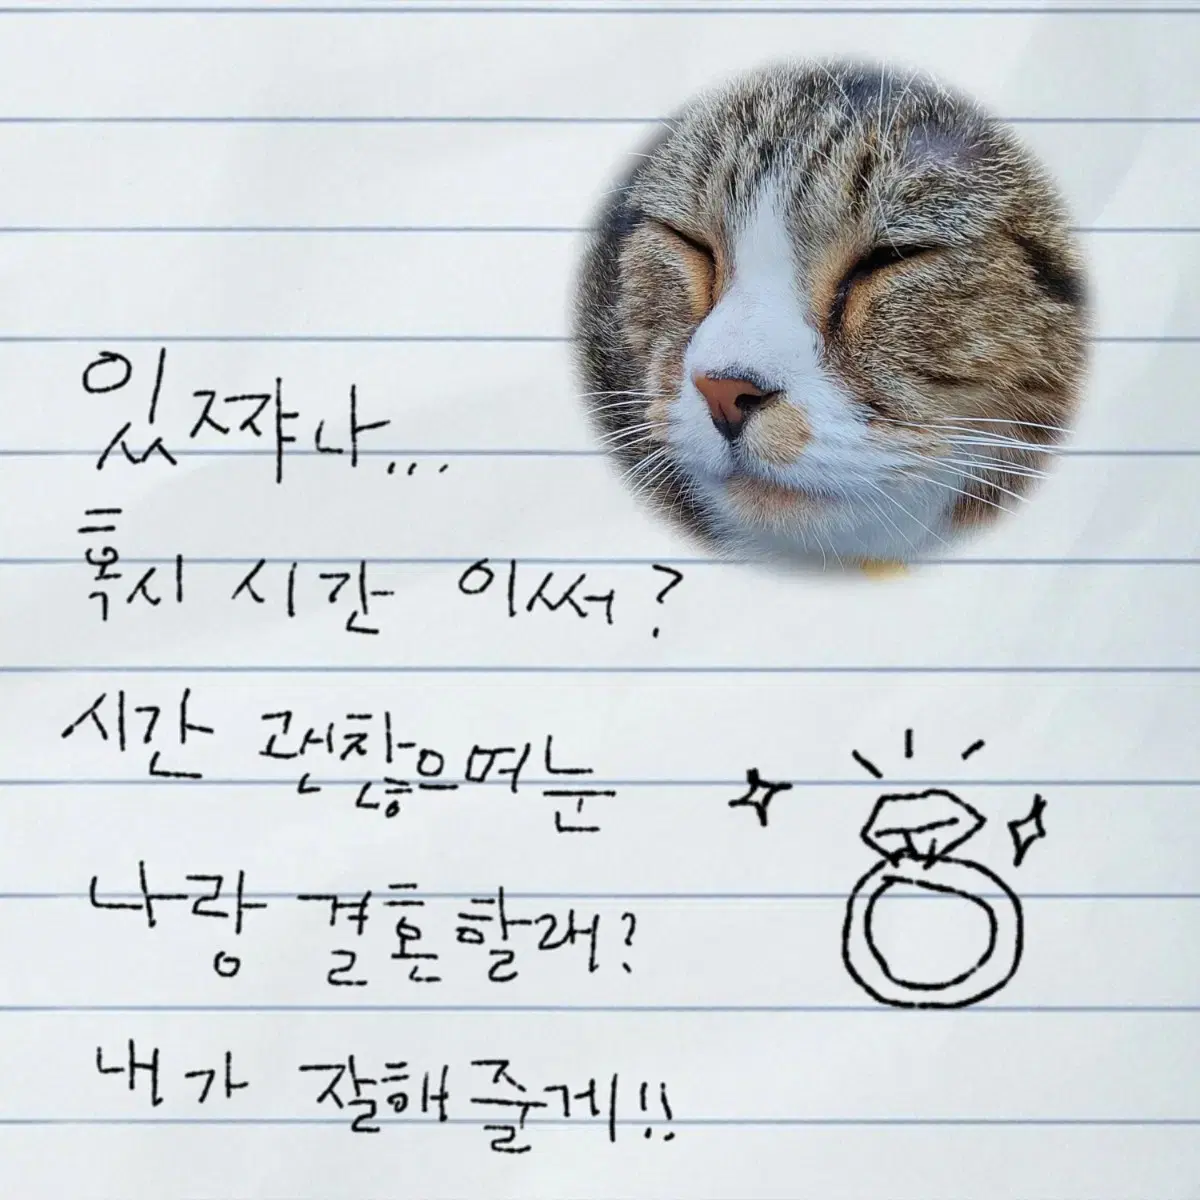 있쨔나...
혹시 시간 이써?
시간 괜찮으며눈
나랑 결혼할래?
내가 잘해줄게!!